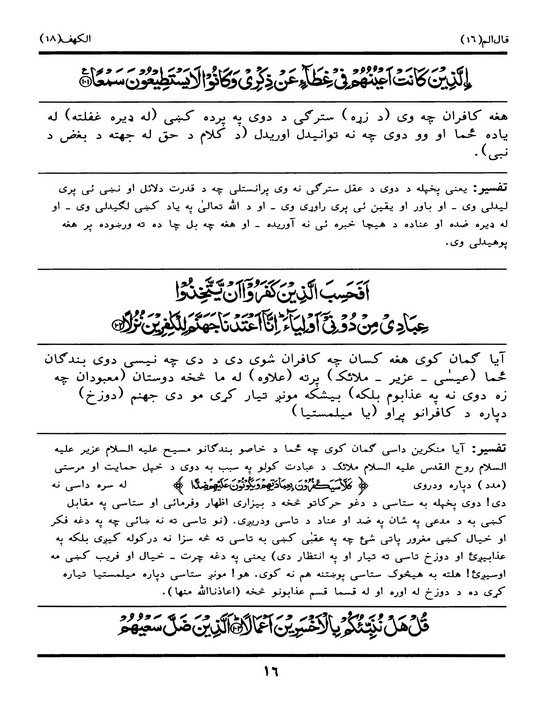 قال الم(١٦) الکهف(١٨)
الَّذِيْنَ كَانَتْ اَعْيُنُهُمْ فِيْ غِطَآءٍ عَنْ ذِكْرِيْ وَكَانُوْا لَا يَسْتَطِيْعُوْنَ سَمْعًا ﴿١٠١﴾
هغه کافران چه وی (د زړه) سترګی د دوی په پرده کښی (له ډیره غفلته) له
یاده څما او وو دوی چه نه توانیدل اوریدل (د کلام د حق له جهته د بغض د
نبی).
تفسیر: یعنی پخپله د دوی د عقل سترګی نه وی پرانستلی چه د قدرت دلائل او نښی ئی پری
لیدلی وی ـ او باور او یقین ئی پری راوړی وی ـ او د الله تعالیٰ په یاد کښی لګیدلی وی ـ او
له ډیره ضده او عناده د هیچا خبره ئی نه آوریده ـ او هغه چه بل چا ده ته ورښوده پر هغه
پوهیدلی وی.
اَفَحَسِبَ الَّذِيْنَ كَفَرُوْۤا اَنْ يَّتَّخِذُوْا
عِبَادِيْ مِنْ دُوْنِيْۤ اَوْلِيَآءَ ؕ اِنَّاۤ اَعْتَدْنَا جَهَنَّمَ لِلْكٰفِرِيْنَ نُزُلًا ﴿١٠٢﴾
آیا ګمان کوی هغه کسان چه کافران شوی دی د دی چه نیسی دوی بندګان
څما (عیسٰی ـ عزیر ـ ملائک) پرته (علاوه) له ما څخه دوستان (معبودان چه
زه دوی نه په عذابوم بلکه) بیشکه مونږ تیار کړی مو دی جهنم (دوزخ)
دپاره د کافرانو پړاو (یا میلمستیا)
تفسیر: آیا منکرین داسی ګمان کوی چه څما د خاصو بندګانو مسیح علیه السلام عزیر علیه
السلام روح القدس علیه السلام ملائک د عبادت کولو په سبب به دوی د خپل حمایت او مرستی
(مدد) دپاره ودروی ﴿ كَلَّا سَيَكْفُرُوْنَ بِعِبَادَتِهِمْ وَيَكُوْنُوْنَ عَلَيْهِمْ ضِدًّا ﴾ له سره داسی نه
دی! دوی پخپله به ستاسی د دغو حرکاتو څخه د بیزاری اظهار وفرمائی او ستاسی په مقابل
کښی به د مدعی په شان په ضد او عناد د تاسی ودریږی. (نو تاسی ته نه ښائی چه په دغه فکر
او خیال کښی مغرور پاتی شئ چه په عقبٰی کښی به تاسی ته څه سزا نه درکوله کیږی بلکه په
عذابیږئ او دوزخ تاسی ته تیار او په انتظار دی) یعنی په دغه چرت ـ خیال او فریب کښی مه
اوسیږئ! هلته به هیڅوک ستاسی پوښتنه هم نه کوی. هو! مونږ ستاسی دپاره میلمستیا تیاره
کړی ده د دوزخ له اوره او له قسما قسم عذابونو څخه (اعاذناالله منها).
قُلْ هَلْ نُنَبِّئُكُمْ بِالْاَخْسَرِيْنَ اَعْمَالًا ﴿١٠٣﴾ اَلَّذِيْنَ ضَلَّ سَعْيُهُمْ
١٦